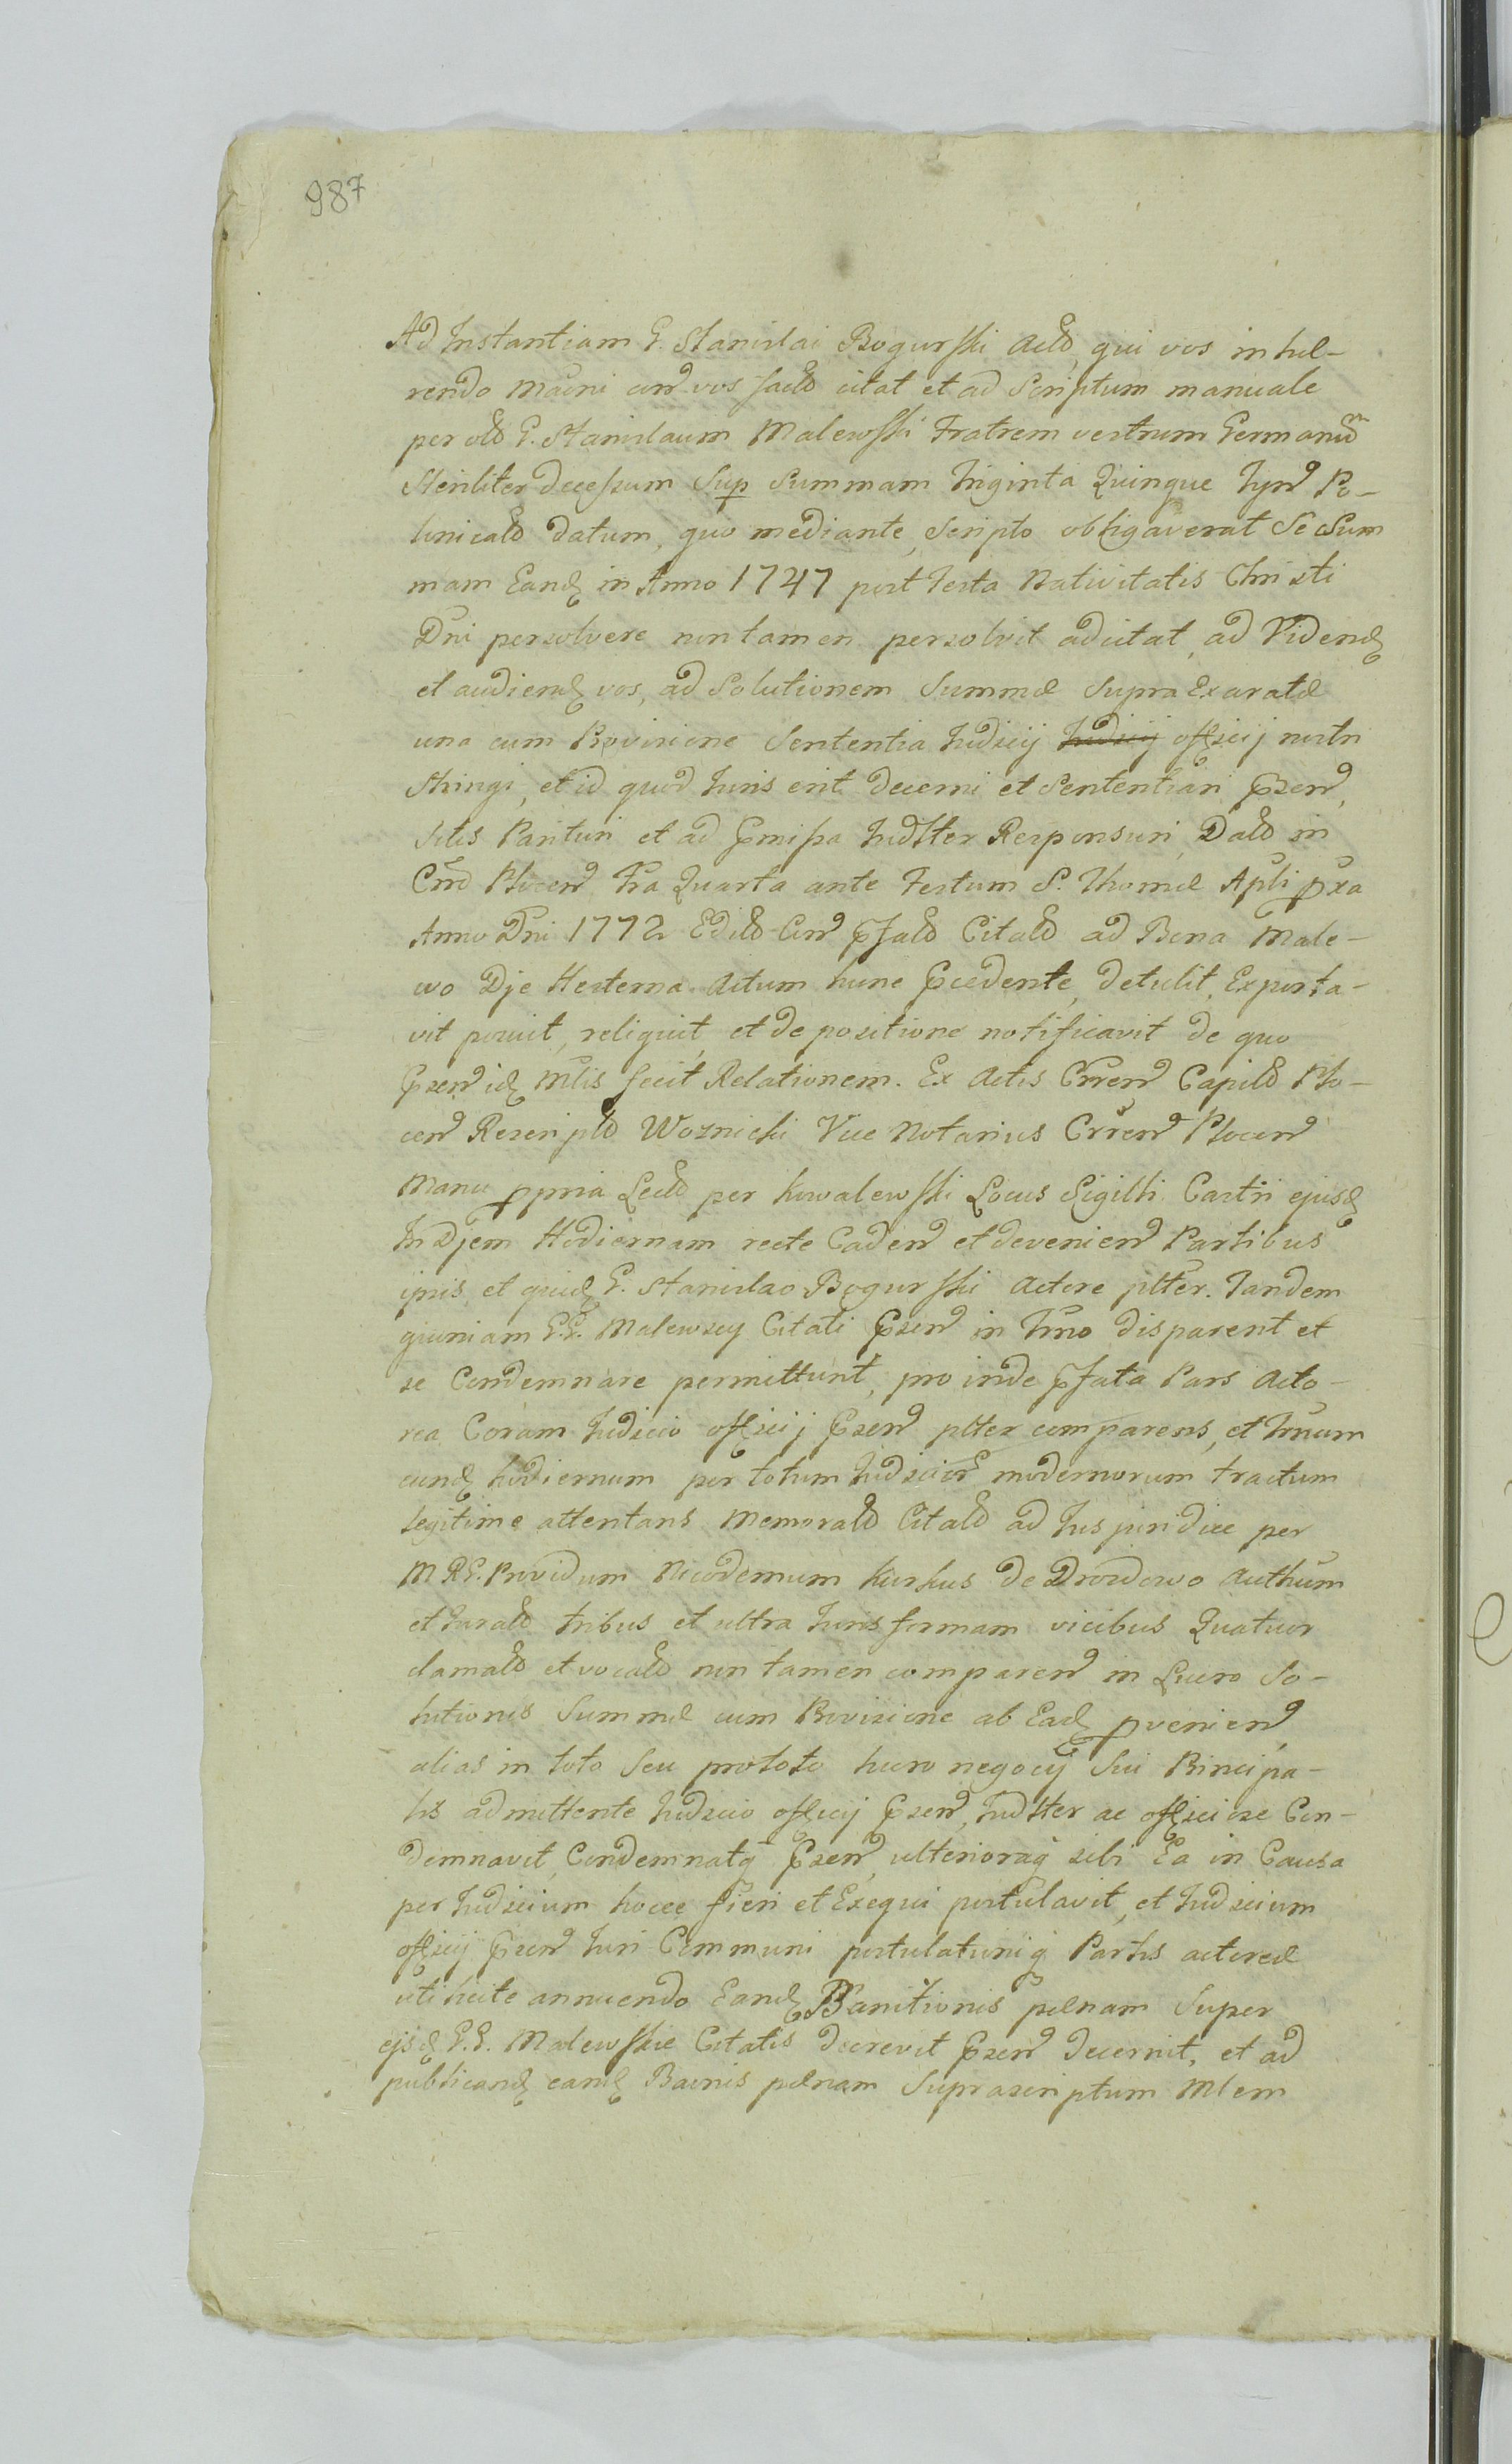 987
Ad Instantiam G. Stanislai Bogurski Actō, qui vos inhæ-
rendo citat et ad Scriptum manuale
per olō G. Stanislaum Malewski Fratrem vestrum Germanū
Steriliter decessum Sup Summam Triginta Quinque Tyn̄ Po-
lonicalō datum, quo mediante, Scripto obligaverat Se Sum
mam Eandꝫ in Anno 1747 post Festa Nativitatis Christi
Dn̄i persolvere non tamen persolvit adcitat, ad Videndꝫ
et audiendꝫ vos, ad Solutionem Summæ Supra Exaratæ
una cum Provisione Sententia Iudicij Iudicij officij nostri
Stringi, et id quod Iuris erit decerni et Sententiari p̄sen̄,
Sitis Parituri et ad p̄missa Iudlter Responsuri, Datō in
Crrō Plocen̄ Fria Quarta ante Festum S. Thomæ Apli pxa
Anno Dn̄i 1772 Editō p̄fatō Citatō ad Bona Male-
wo Dje Hesterna Actum hunc p̄cedente, detulit, Exporta-
vit posuit, reliquit, et de positione notificavit de quo
p̄sen̄ idꝫ Mlis fecit Relationem. Ex Actis Crren̄ Capitō Plo-
cen̄ Rescriptō Woznicki Vice Notarius Crren̄ Plocen̄
Manu ppria Lectō per Kowalewski Locus Sigilli Castri ejusdꝫ
In Djem Hodiernam recte Caden̄ et devenien̄ Partibus
ipsis, et quidꝫ G. Stanislao Bogurski Actore plter. Tandem
quoniam G.G. Malewscy Citati p̄sen̄ in Trno disparent et
se Condemnare permittunt, pro inde p̄fata Pars Acto-
rea Coram Iudicio officij p̄sen̄ plter comparens, et Trnum
eundꝫ hodiernum per totum Iudicior̄ modernorum tractum
legitime attentans Memoratō Citatō ad Ius juridice per
M R G. Providum Nicodemum Kurkus de Drozdowo Authum
et Juratō tribus et ultra Iuris formam vicibus Quatuor
clamatō et vocatō non tamen comparen̄ in Lucro So-
lutionis Summæ cum Provisione ab Eadꝫ pvenien̄,
alias in toto Seu pro toto lucro negocij Sui Principa-
lis admittente Iudicio officij p̄sen̄, Iudlter ac officiose Con-
demnavit, Condemnatq̄ p̄sen̄, ulterioraq̄ sibi Ea in Causa
per Iudicium hocce fieri et Exequi postulavit, et Iudicium
officij p̄sen̄ Iuri Communi postulationiq̄ Partis actoreæ
uti licite annuendo Eandꝫ Bannitionis pœnam Super
ejsdꝫ G.G. Malewskie Citatis decrevit p̄sen̄ decernit, et ad
publicandꝫ eandꝫ Baōnis pœnam Suprascriptum Mlem